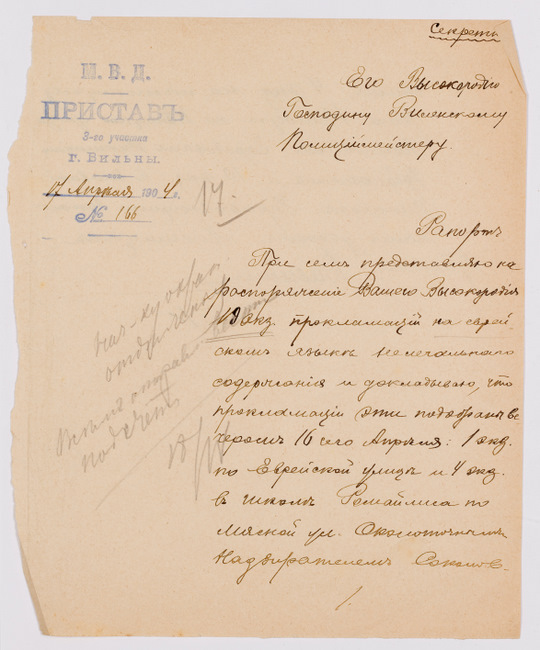 Секретн
М. В. Д.
ПРИСТАВЪ
3-го участка
г. Вильны.
17 Апреля 1904 г.
№ 166
17.
Его Высокородію
Господину Виленскому
Полиціймейстеру.
Рапортъ
При семъ представляю на
распоряженіе Вашего Высокородія
19 экз. прокламацій на еврей
скомъ языкѣ нелегальнаго
содержанія и докладываю, что
прокламаціи эти подобраны ве
черомъ 16 сего Апрѣля: 1 экз.
по Еврейской улицѣ и 4 экз.
въ школѣ Рамайлиса по
Мясной ул. Околоточнымъ
Надзирателемъ Соколов-
Нач-ку охран
отдѣленія
подсчетъ